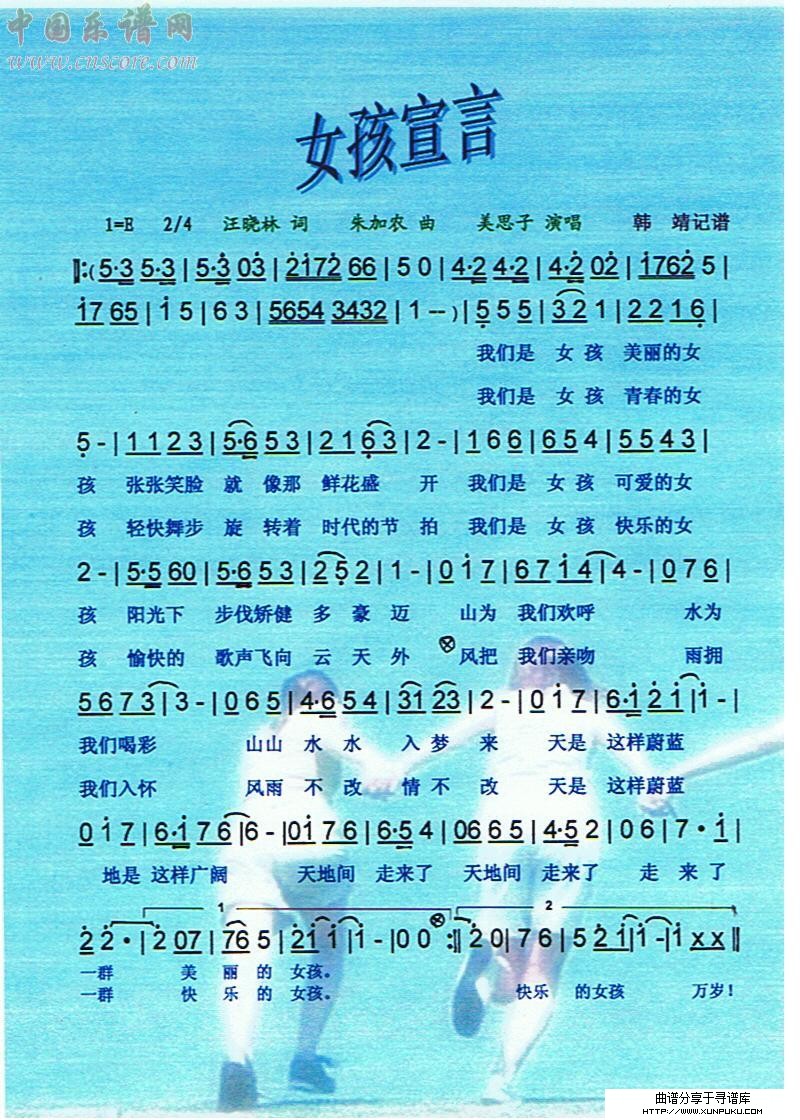 中国乐谱网
www.cnscore.com
女孩宣言
1=E 2/4 汪晓林 词 朱加农 曲 美思子 演唱 韩 靖记谱
‖:(5·3 5·3|5·3 03|2172 66|5 0|4·2 4·2|4·2 02|1762 5|
1765|1 5|6 3|5654 3432|1 --)|5 5 5|3 2 1|2 2 1 6|
我们是 女 孩 美丽的女
我们是 女 孩 青春的女
5 -|1 1 2 3|5·6 5 3|2 1 6 3|2 -|1 6 6|6 5 4|5 5 4 3|
孩 张张笑脸 就 像那 鲜花盛 开 我们是 女 孩 可爱的女
孩 轻快舞步 旋 转着 时代的节 拍 我们是 女 孩 快乐的女
2 -|5·5 60|5·6 5 3|2 5 2|1 -|0 1 7|6 7 1 4|4 -|0 7 6|
孩 阳光下 步伐矫健 多 豪 迈 山为 我们欢呼 水为
孩 愉快的 歌声飞向 云 天 外 风把 我们亲吻 雨拥
5 6 7 3|3 -|0 6 5|4·6 5 4|31 23|2 -|0 1 7|6·1 2 1|1 -|
我们喝彩 山山 水 水 入 梦 来 天是 这样蔚蓝
我们入怀 风雨 不 改 情 不 改 天是 这样蔚蓝
0 1 7|6·1 7 6|6 -|01 7 6|6·5 4|06 6 5|4·5 2|0 6|7·1|
地是 这样广阔 天地间 走来了 天地间 走来了 走 来 了
1 2
2 2·|2 07|76 5|21 1|1 -|0 0 :‖ 2 0|7 6|5 2 1|1 -|1 x x‖
一群 美 丽 的 女孩。
一群 快 乐 的 女孩。 快乐 的女孩 万岁!
曲谱分享于寻谱库
HTTP://WWW.XUNPUKU.COM